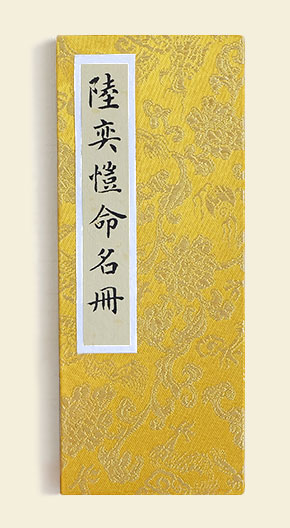 陸奕愷命名冊